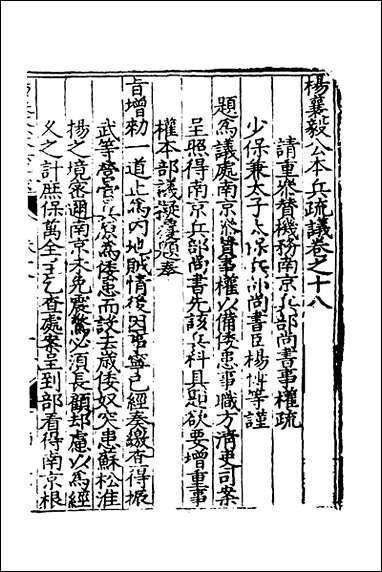 楊襄毅公本兵疏議卷之十八
請重參贊機務南京兵部尚書事權疏
少保兼太子太保兵部尚書臣楊博等謹
題為議處南京參贊事權以備倭患事職方清吏司案
呈照得南京兵部尚書先該兵科具題欲要增重事
權本部議擬覆題奉
旨增勑一道止為內地賊情後因事寧已經奏繳查得振
武等營官兵原為倭患而設去歲倭奴突患蘇松淮
揚之境密邇南京未免震驚必須長顧却慮以為經
久之計庶保萬全呈乞查處案呈到部看得南京根